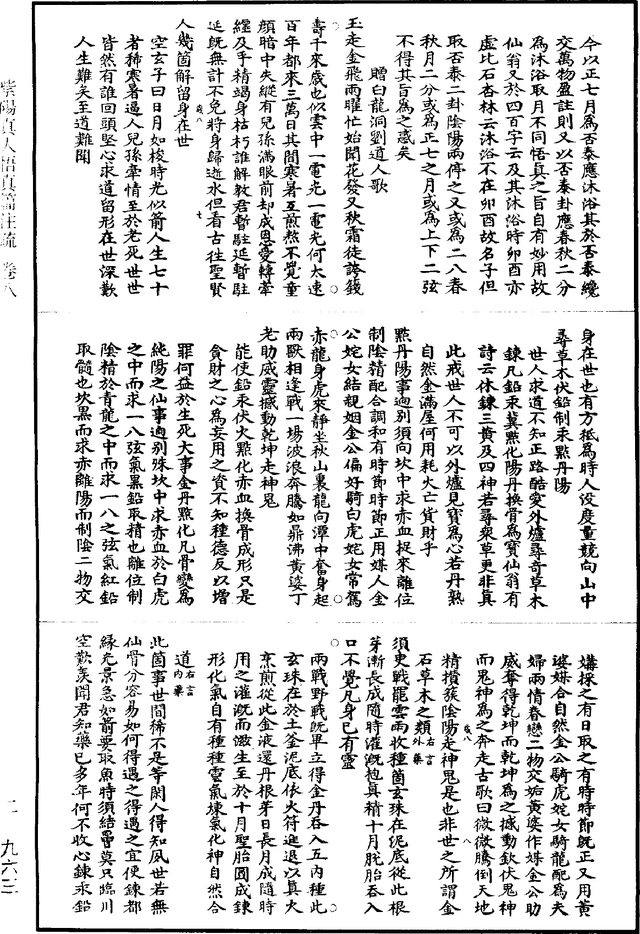 今以正七月爲否泰應沐浴其於否泰纔
交萬物盈註則又以否泰卦應春秋二分
爲沐浴取月不同悟真之旨自有妙用故
仙翁又於四百字云及其沐浴時卯酉亦
虛比石杏林云沐浴不在卯酉故名子但
取否泰二卦陰陽兩停之又或爲二八春
秋月二分或爲正七之月或爲上下二弦
不得其旨爲之惑矣
贈白龍洞劉道人歌
玉走金飛兩曜忙始聞花發又秋霜徒誇籛
壽千來歲也似雲中一電光一電光何太速
百年都來三萬日其間寒暑互煎熬不覺童
顏暗中失縱有兒孫滿眼前却成恩愛轉牽
纏及乎精竭身枯朽誰解教君暫駐延暫駐
延既無計不免將身歸逝水但看古往聖賢
人幾箇解留身在世
空玄子曰日月如梭時光似箭人生七十
者稀寒暑逼人兒孫牽情至於老死世世
皆然有誰回頭堅心求道留形在世深歎
人生難矣至道難聞
身在世也有方祗爲時人沒度量競向山中
尋草木伏鉛制汞點丹陽
世人求道不知正路酷愛外爐尋奇草木
鍊凡鉛汞冀點化陽丹換骨爲寳仙翁有
詩云休鍊三黃及四神若尋衆草更非真
此戒世人不可以外爐見寳爲心若丹熟
自然金滿屋何用耗火亡貨財乎
點丹陽事迥别須向坎中求赤血捉來離位
制陰精配合調和有時節時節正用媒人金
公姹女結親姻金公偏好騎白虎姹女常駕
赤龍身虎來靜坐秋山裏龍向潭中奮身起
兩獸相逢戰一場波浪奔騰如鼎沸黃婆丁
老助威靈撼動乾坤走神鬼
能使鉛汞伏火點化赤血換骨成形只是
貪財之心爲妄用之資不知種德反以增
罪何益於生死大事金丹點化凡骨變爲
純陽之仙事迥别殊坎中求赤血於白虎
之中而求一八弦氣黑鉛取精也離位制
陰精於青龍之中而求一八之弦氣紅鉛
取髓也坎黑而求赤離陽而制陰二物交
媾採之有日取之有時時節既正又用黃
婆媒合自然金公騎虎姹女騎龍配爲夫
婦兩情眷戀二物交姤黃婆作媒金公助
威奪得乾坤而乾坤爲之撼動欽伏鬼神
而鬼神爲之奔走古歌曰微微騰倒天地
精攢簇陰陽走神鬼是也非世之所謂金
石草木之類右言外藥
須㬰戰罷雲雨收種箇玄珠在泥底從此根
芽漸長成隨時灌溉抱真精十月脫胎吞入
口不覺凡身已有靈
兩戰野戰既畢立得金丹吞入五内種此
玄珠在於土釜泥底依火符進退以真火
烹煎從此金液還丹根芽日長月成隨時
用之灌溉而滋生至於十月聖胎圓成鍊
形化氣自有種種靈氣煉氣化神自然合
道右言内藥
此箇事世間稀不是等閑人得知夙世若無
仙骨分容易如何得遇之得遇之宜便鍊都
緣光景急如箭要取魚時須結罾莫只臨川
空歎羨聞君知藥已多年何不收心鍊汞鉛
紫陽真人悟真篇注疏 卷八
二一九六三